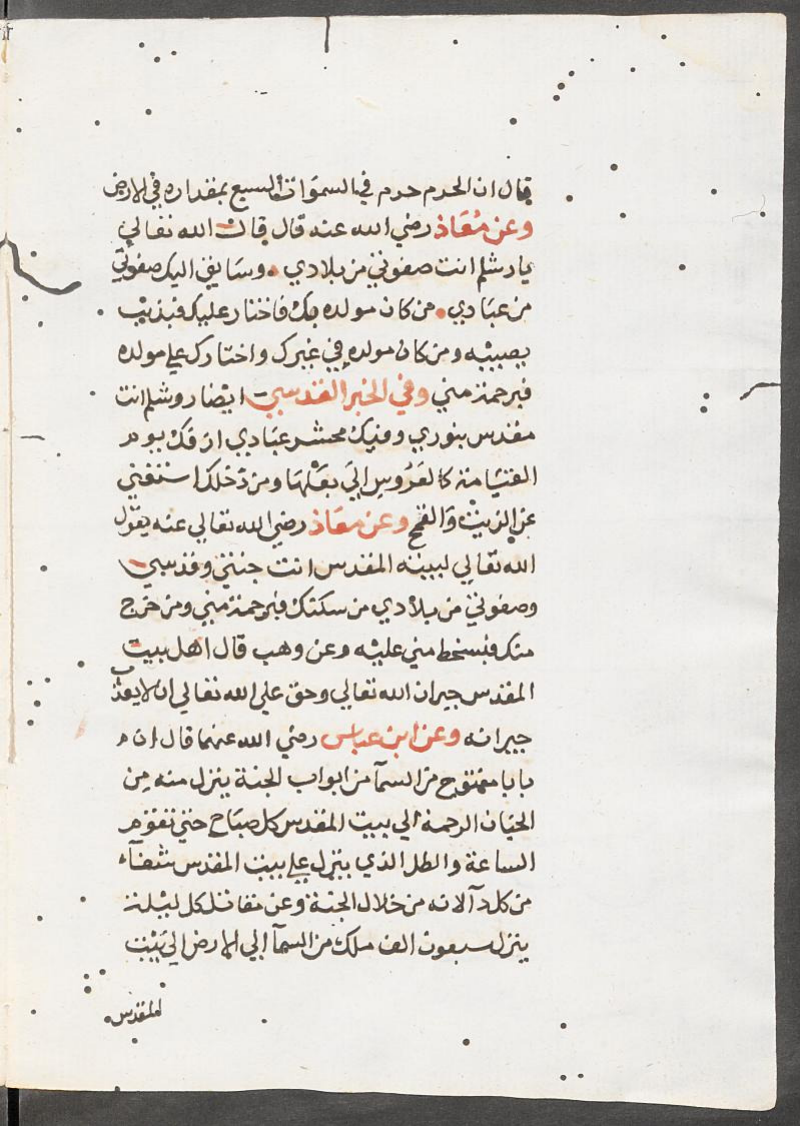 قال ان الحرم حرم في السموات السبع بمقداره في الارض
وعن معاذ رضي الله عنه قال قال الله تعالي
يارشلم انت صفوتي من بلادي وسايق اليك صفوتي
من عبادي من كان مولده بك فاختار عليك فبذنب
يصيبه ومن كان مولده في غيرك واختارك علي مولده
فبرحمة مني وفي الخبر القدسي ايضا روشلم انت
مقدس بنوري وفيك محشر عبادي ازفك يوم
القيامة كالعروس الي بعلها ومن دخلك استغني
عن الزيت والقمح وعن معاذ رضي الله تعالي عنه يقول
الله تعالي لبيت المقدس انت جنتي وقدسي
وصفوتي من بلادي من سكنك فبرحمة مني ومن خرج
منك فبسخط مني عليه وعن وهب قال اهل بيت
المقدس جيران الله تعالي وحق علي الله تعالي ان لا يعذب
جيرانه وعن ابن عباس رضي الله عنهما قال ان
بابا مفتوح من السمآ من ابواب الجنة ينزل منه من
الحنان الرحمة الي بيت المقدس كل صباح حتي تقوم
الساعة والطل الذي ينزل علي بيت المقدس شفآء
من كل دآ لانه من خلال الجنة وعن مقاتل كل ليلة
ينزل سبعون الف ملك من السمآ الي الارض الي بيت
المقدس